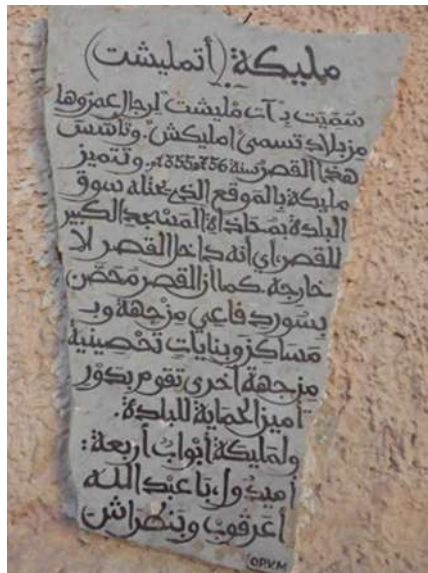 مليكة (أتمليشت)
سُمّيت بـ "آت مليشت" لرجال عمروها
من بلاد تسمى امليكش. وتأسس
هذا القصر سنة 756هـ/1355م. وتتميز
مليكة بالموقع الذي يحتله سوق
البلدة بمحاذاة المسجد الكبير
للقصر، أي أنه داخل القصر لا
خارجه. كما أن القصر محصّن
بسور دفاعي من جهة وبـ
مساكن وبنايات تحصينية
من جهة أخرى تقوم بدور
تأمين الحماية للبلدة.
ولمليكة أبواب أربعة:
أميدول، با عبد الله
أعرقوب وبنطراش
OPVM